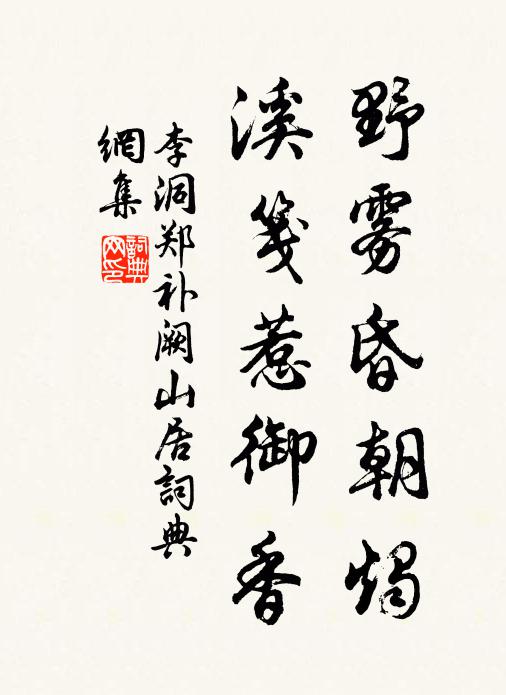 野雾昏朝烛
溪笺惹御香
李洞郑补阙山居詞典
網集
詞典网印